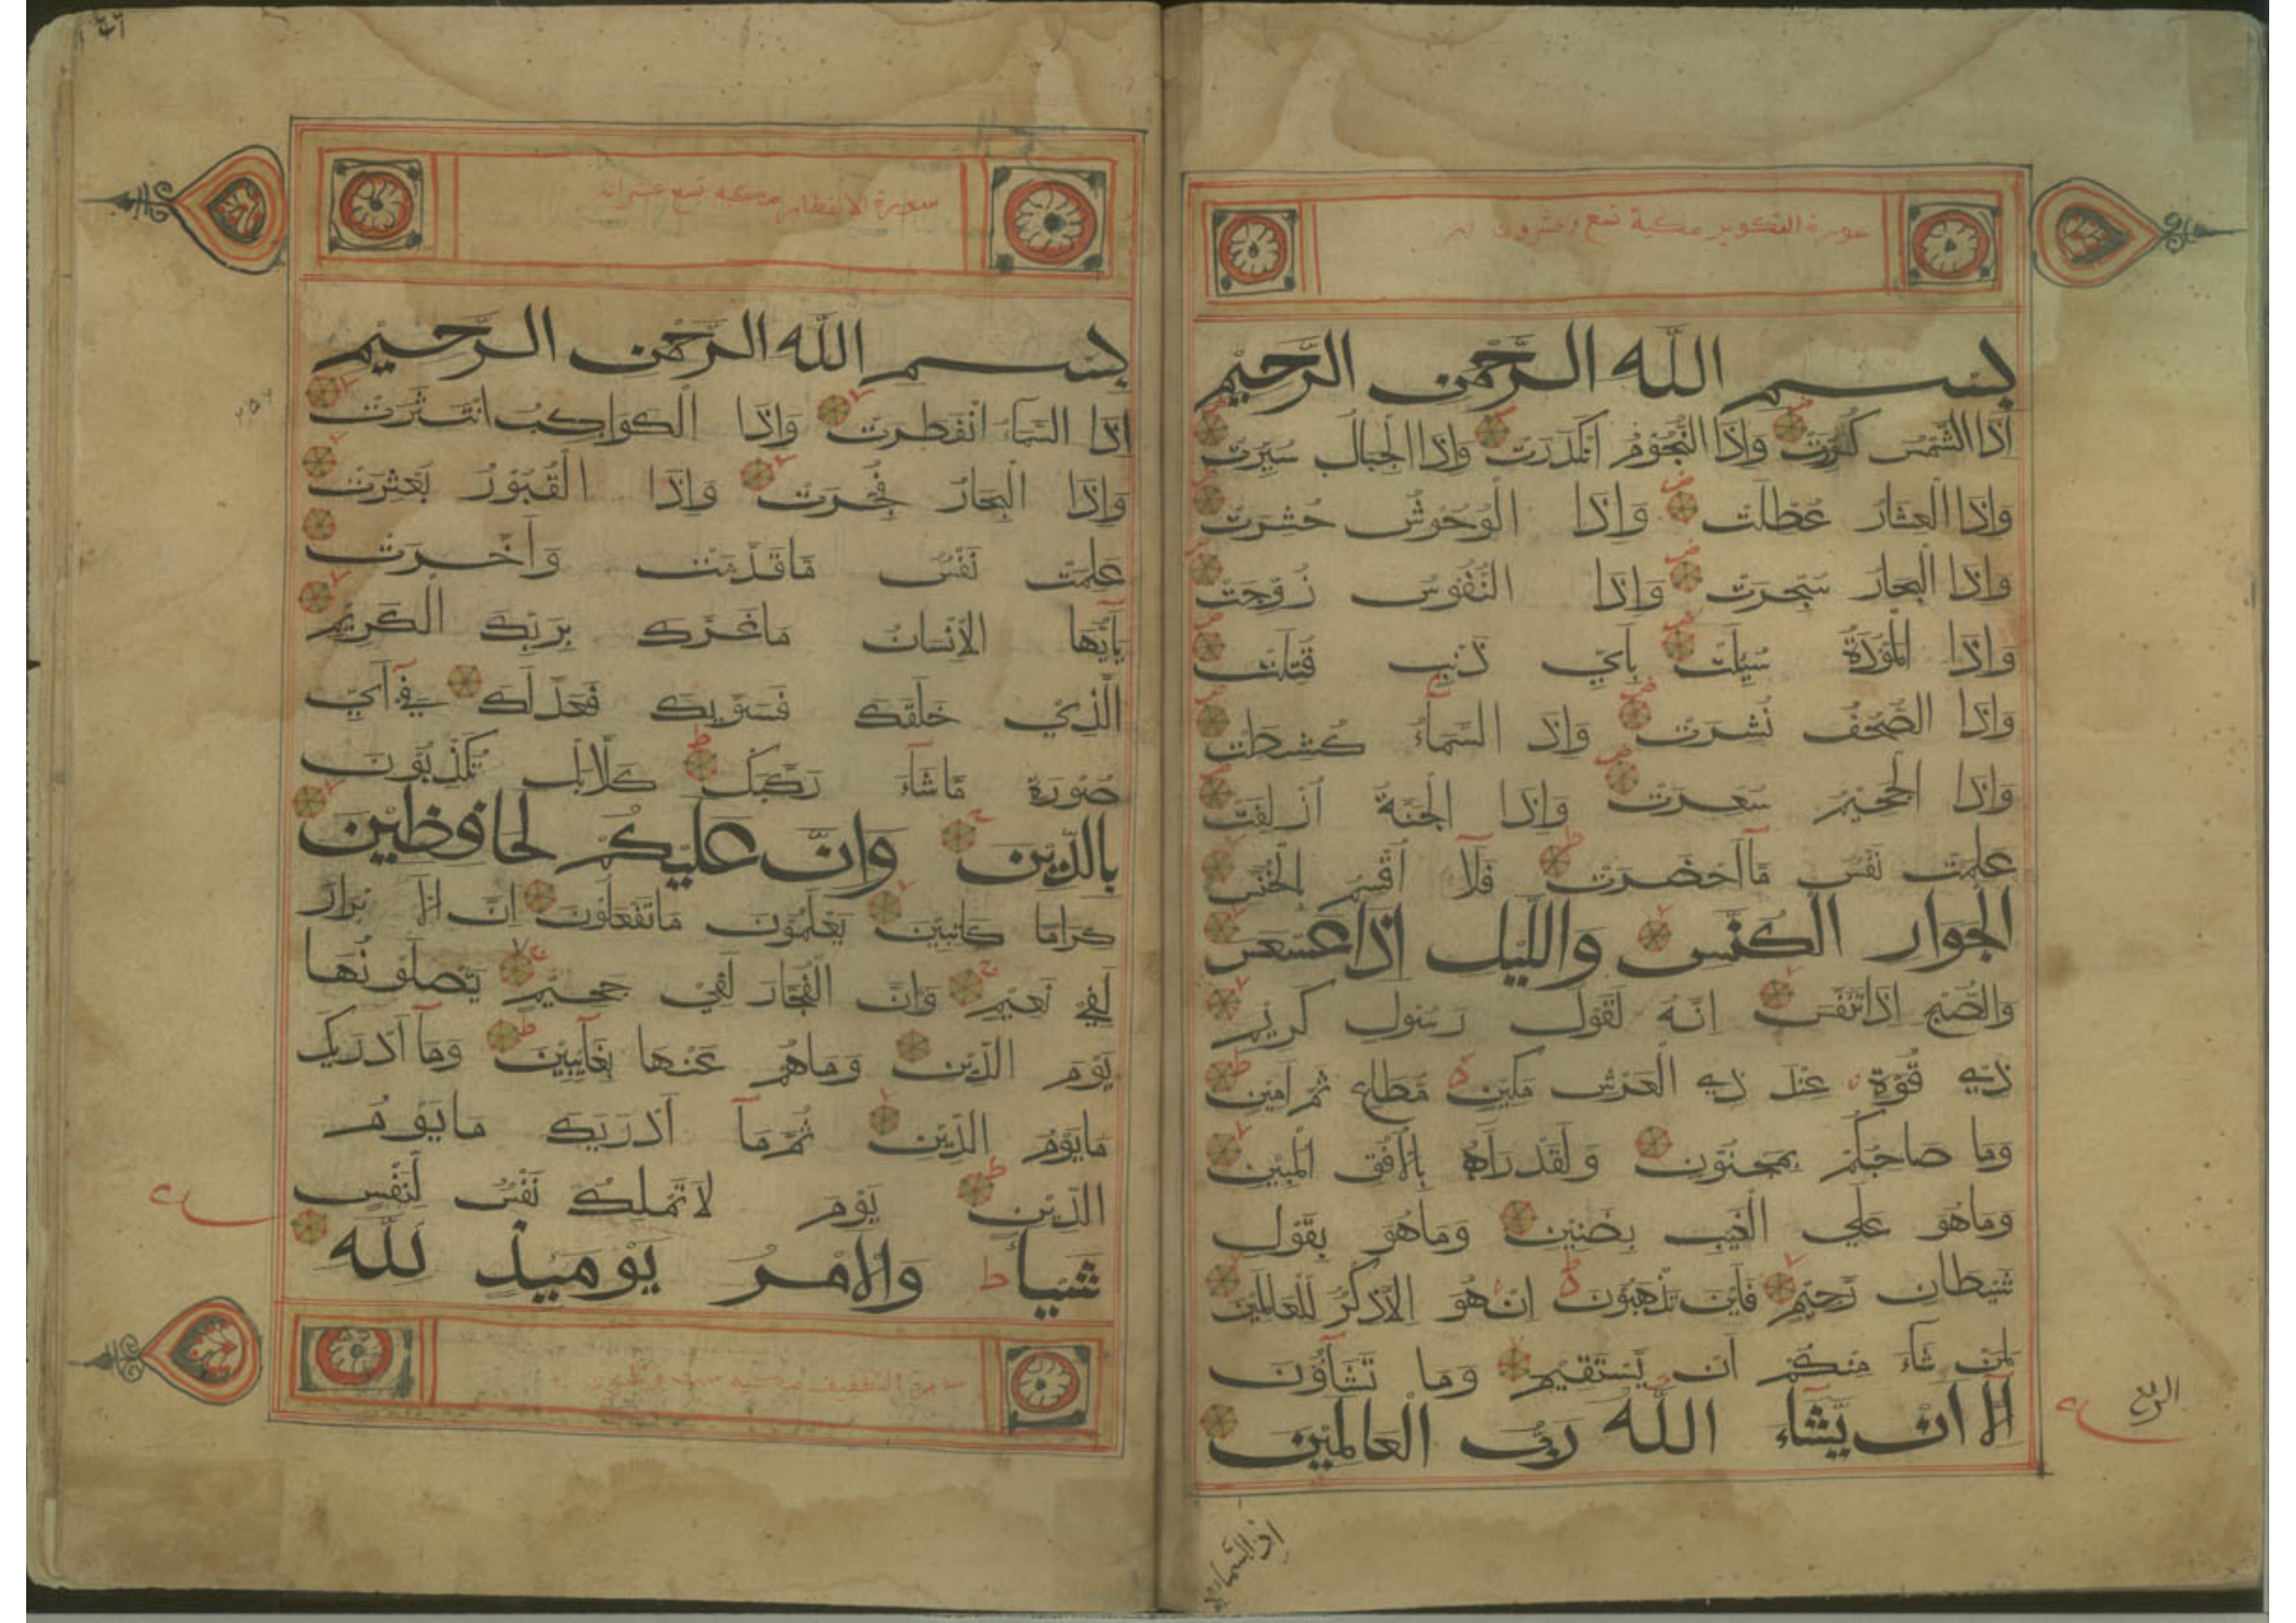 سورة التكوير مكية تسع وعشرون اية
بِسْمِ اللَّهِ الرَّحْمَنِ الرَّحِيْمِ
اِذَا الشَّمْسُ كُوِّرَتْ وَاِذَا النُّجُوْمُ انْكَدَرَتْ وَاِذَا الْجِبَالُ سُيِّرَتْ
وَاِذَا الْعِشَارُ عُطِّلَتْ وَاِذَا الْوُحُوْشُ حُشِرَتْ
وَاِذَا الْبِحَارُ سُجِّرَتْ وَاِذَا النُّفُوْسُ زُوِّجَتْ
وَاِذَا الْمَوْؤُدَةُ سُئِلَتْ بِاَيِّ ذَنْبٍ قُتِلَتْ
وَاِذَا الصُّحُفُ نُشِرَتْ وَاِذَ السَّمَآءُ كُشِطَتْ
وَاِذَا الْجَحِيْمُ سُعِّرَتْ وَاِذَا الْجَنَّةُ اُزْلِفَتْ
عَلِمَتْ نَفْسٌ مَّآ اَحْضَرَتْ فَلَآ اُقْسِمُ بِالْخُنَّسِ
الْجَوَارِ الْكُنَّسِ وَاللَّيْلِ اِذَا عَسْعَسَ
وَالصُّبْحِ اِذَا تَنَفَّسَ اِنَّهُ لَقَوْلُ رَسُوْلٍ كَرِيْمٍ
ذِي قُوَّةٍ عِنْدَ ذِي الْعَرْشِ مَكِيْنٍ مُّطَاعٍ ثَمَّ اَمِيْنٍ
وَمَا صَاحِبُكُمْ بِمَجْنُوْنٍ وَلَقَدْ رَآهُ بِالْاُفُقِ الْمُبِيْنِ
وَمَا هُوَ عَلَى الْغَيْبِ بِضَنِيْنٍ وَمَا هُوَ بِقَوْلِ
شَيْطَانٍ رَّجِيْمٍ فَاَيْنَ تَذْهَبُوْنَ اِنْ هُوَ اِلَّا ذِكْرٌ لِّلْعَالَمِيْنَ
لِمَنْ شَآءَ مِنْكُمْ اَنْ يَّسْتَقِيْمَ وَمَا تَشَآؤُنَ
اِلَّا اَنْ يَّشَآءَ اللَّهُ رَبُّ الْعَالَمِيْنَ
الربع
اذا السماء
سورة الانفطار مكية تسع عشر اية
بِسْمِ اللَّهِ الرَّحْمَنِ الرَّحِيْمِ
اِذَا السَّمَآءُ انْفَطَرَتْ وَاِذَا الْكَوَاكِبُ انْتَثَرَتْ
وَاِذَا الْبِحَارُ فُجِّرَتْ وَاِذَا الْقُبُوْرُ بُعْثِرَتْ
عَلِمَتْ نَفْسٌ مَّا قَدَّمَتْ وَاَخَّرَتْ
يَآ اَيُّهَا الْاِنْسَانُ مَا غَرَّكَ بِرَبِّكَ الْكَرِيْمِ
الَّذِيْ خَلَقَكَ فَسَوّٰيكَ فَعَدَلَكَ فِيْٓ اَيِّ
صُوْرَةٍ مَّا شَآءَ رَكَّبَكَ كَلَّا بَلْ تُكَذِّبُوْنَ
بِالدِّيْنِ وَاِنَّ عَلَيْكُمْ لَحَافِظِيْنَ
كِرَامًا كَاتِبِيْنَ يَعْلَمُوْنَ مَا تَفْعَلُوْنَ اِنَّ الْاَبْرَارَ
لَفِيْ نَعِيْمٍ وَاِنَّ الْفُجَّارَ لَفِيْ جَحِيْمٍ يَّصْلَوْنَهَا
يَوْمَ الدِّيْنِ وَمَا هُمْ عَنْهَا بِغَآئِبِيْنَ وَمَآ اَدْرٰيكَ
مَا يَوْمُ الدِّيْنِ ثُمَّ مَآ اَدْرٰيكَ مَا يَوْمُ
الدِّيْنِ يَوْمَ لَا تَمْلِكُ نَفْسٌ لِّنَفْسٍ
شَيْئًا وَالْاَمْرُ يَوْمَئِذٍ لِلَّهِ
٢٥٧